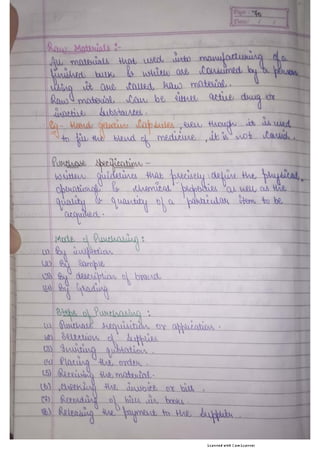 Page: 70
Date: / /
Raw Materials :-
All materials that used into manufacturing of a
finished bulk & which are consumed by a person
using it are called raw material.
Raw material can be either active drug or
inactive substances.
Eg:- Hard gelatin Capsules, even though it is used
to fill the blend of medicine, it is not
Purchase specification -
written guidelines that precisely define the physical,
operational & chemical properties as well as the
quality & quantity of a particular item to be
acquired.
Mode of Purchasing :
(1) By inspection
(2) By Sample
(3) By description of brand
(4) By Grading
Steps of Purchasing :
(1) Purchase requisition or application.
(2) Selection of Supplier
(3) Inviting quotation
(4) Placing the order.
(5) Receiving the material.
(6) Checking the invoice or bill.
(7) Recording of bills in books
(8) Releasing the payment to the Supplier.
Scanned with CamScanner